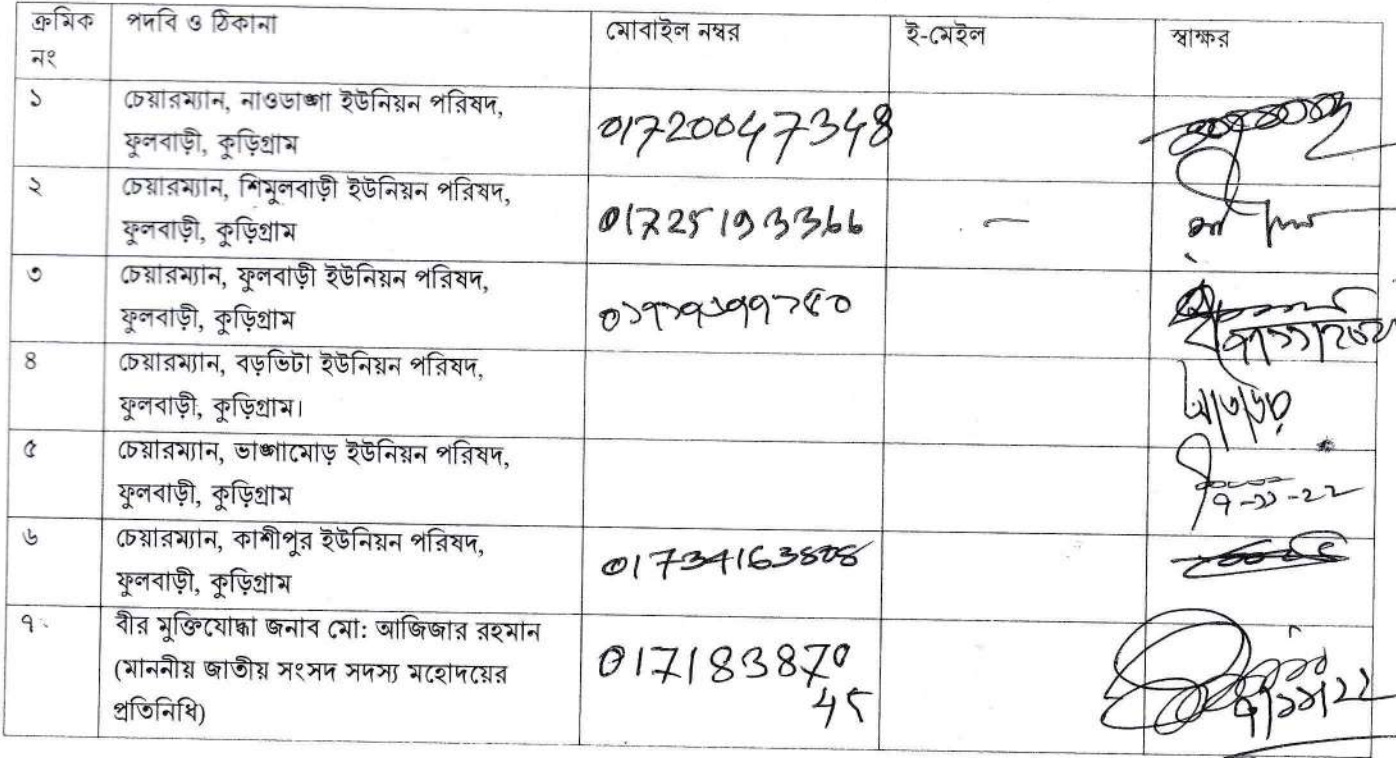 ক্রমিক নং	পদবি ও ঠিকানা	মোবাইল নম্বর	ই-মেইল	স্বাক্ষর
১	চেয়ারম্যান, নাওডাঙ্গা ইউনিয়ন পরিষদ,
ফুলবাড়ী, কুড়িগ্রাম	01720047348
২	চেয়ারম্যান, শিমুলবাড়ী ইউনিয়ন পরিষদ,
ফুলবাড়ী, কুড়িগ্রাম	01725193366	—
৩	চেয়ারম্যান, ফুলবাড়ী ইউনিয়ন পরিষদ,
ফুলবাড়ী, কুড়িগ্রাম
৪	চেয়ারম্যান, বড়ভিটা ইউনিয়ন পরিষদ,
ফুলবাড়ী, কুড়িগ্রাম।
৫	চেয়ারম্যান, ভাঙ্গামোড় ইউনিয়ন পরিষদ,
ফুলবাড়ী, কুড়িগ্রাম	৭-১১-২২
৬	চেয়ারম্যান, কাশীপুর ইউনিয়ন পরিষদ,
ফুলবাড়ী, কুড়িগ্রাম	01734163808
৭	বীর মুক্তিযোদ্ধা জনাব মো: আজিজার রহমান
(মাননীয় জাতীয় সংসদ সদস্য মহোদয়ের	017183870
প্রতিনিধি)	45	৭/১১/২২